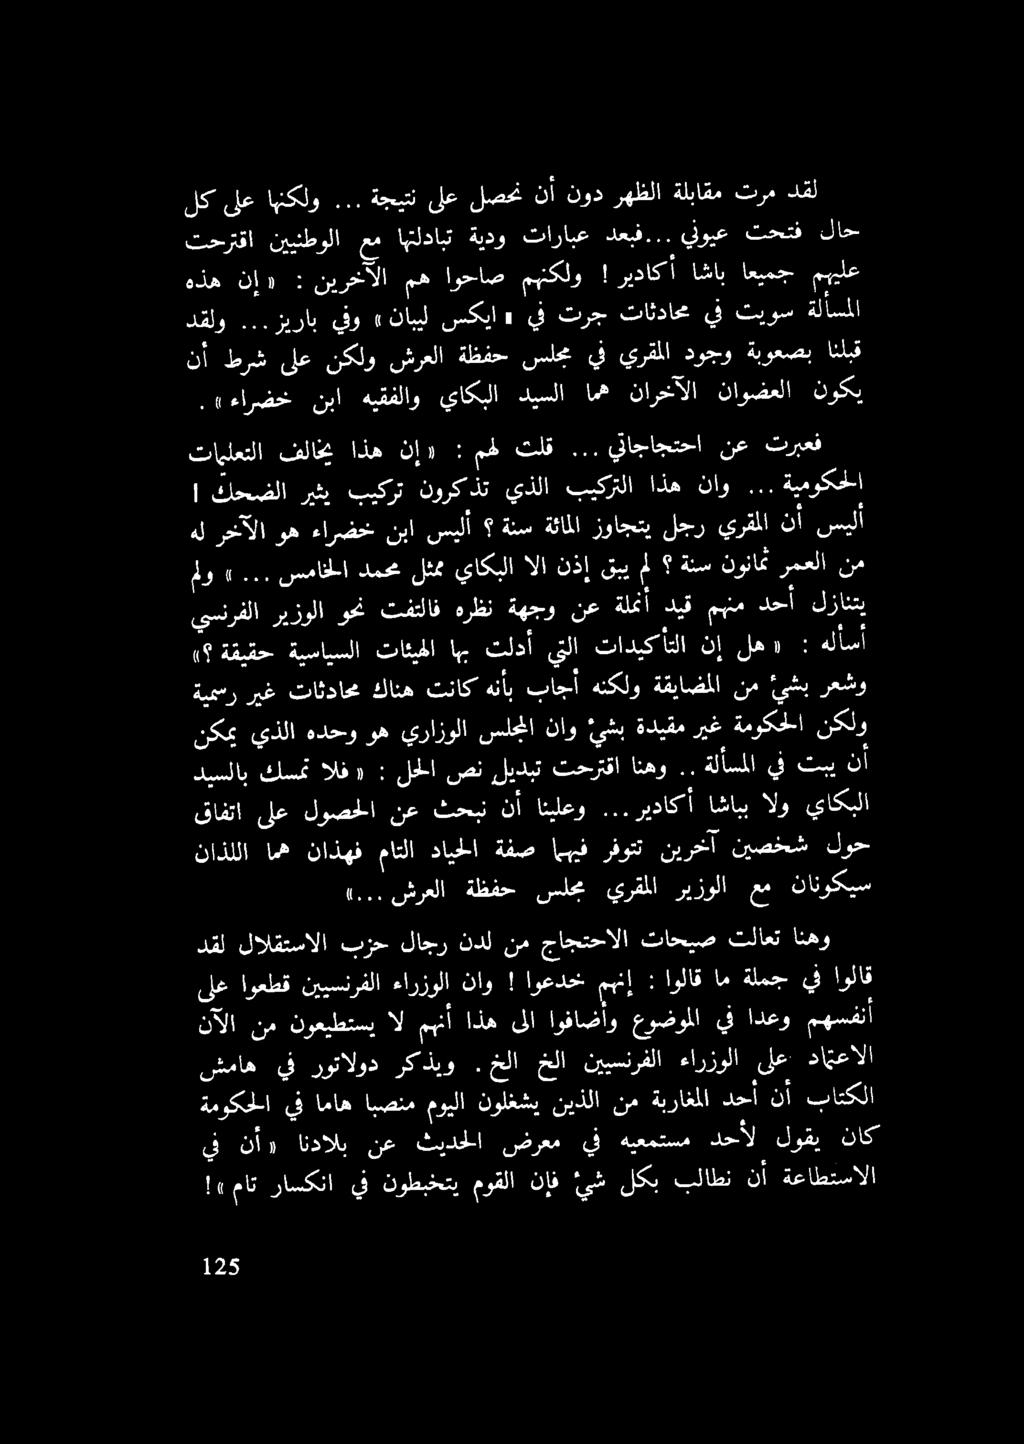 لقد مرت مقابلة الظهر دون أن نحصل على نتيجة ... ولكنها على كل
حال فتحت عيوني ... فبعد عبارات ودية تبادلتها مع الوطنيين اقترحت
عليهم جميعا باشا أكادير ! ولكنهم صاحوا هم الآخرين : « إن هذه
المسألة سويت في محادثات جرت في « ايكس ليبان » وفي باريز ... ولقد
قبلنا بصعوبة وجود المقري في مجلس حفظة العرش ولكن على شرط أن
يكون العضوان الآخران هما السيد البكاي والفقيه ابن خضراء » .
فعبرت عن احتجاجاتي ... قلت لهم : « إن هذا يخالف التعليمات
الحكومية ... وان هذا التركيب الذي تذكرون تركيب يثير الضحك ا
أليس أن المقري رجل يتجاوز المائة سنة ؟ أليس ابن خضراء هو الآخر له
من العمر ثمانون سنة ؟ لم يبق إذن الا البكاي ممثل محمد الخامس ... » ولم
يتنازل أحد منهم قيد أنملة عن وجهة نظره فالتفت نحو الوزير الفرنسي
أسأله : « هل إن التأكيدات التي أدلت بها الهيئات السياسية حقيقة ؟ »
وشعر بشئ من المضايقة ولكنه أجاب بأنه كانت هناك محادثات غير رسمية
ولكن الحكومة غير مقيدة بشئ وان المجلس الوزاري هو وحده الذي يمكن
أن يبت في المسألة .. وهنا اقترحت تبديل نص الحل : « فلا تمسك بالسيد
البكاي ولا بباشا أكادير ... وعلينا أن نبحث عن الحصول على اتفاق
حول شخصين آخرين تتوفر فيهما صفة الحياد التام فهذان هما اللذان
سيكونان مع الوزير المقري مجلس حفظة العرش ... »
وهنا تعالت صيحات الاحتجاج من لدن رجال حزب الاستقلال لقد
قالوا في جملة ما قالوا : إنهم خدعوا ! وان الوزراء الفرنسيين قطعوا على
أنفسهم وعدا في الموضوع وأضافوا الى هذا أنهم لا يستطيعون من الآن
الاعتماد على الوزراء الفرنسيين الخ الخ . ويذكر دولاتور في هامش
الكتاب أن أحد المغاربة من الذين يشغلون اليوم منصبا هاما في الحكومة
كان يقول لأحد مستمعيه في معرض الحديث عن بلادنا « أن في
الاستطاعة أن نطالب بكل شئ فإن القوم يتخبطون في انكسار تام » !
125